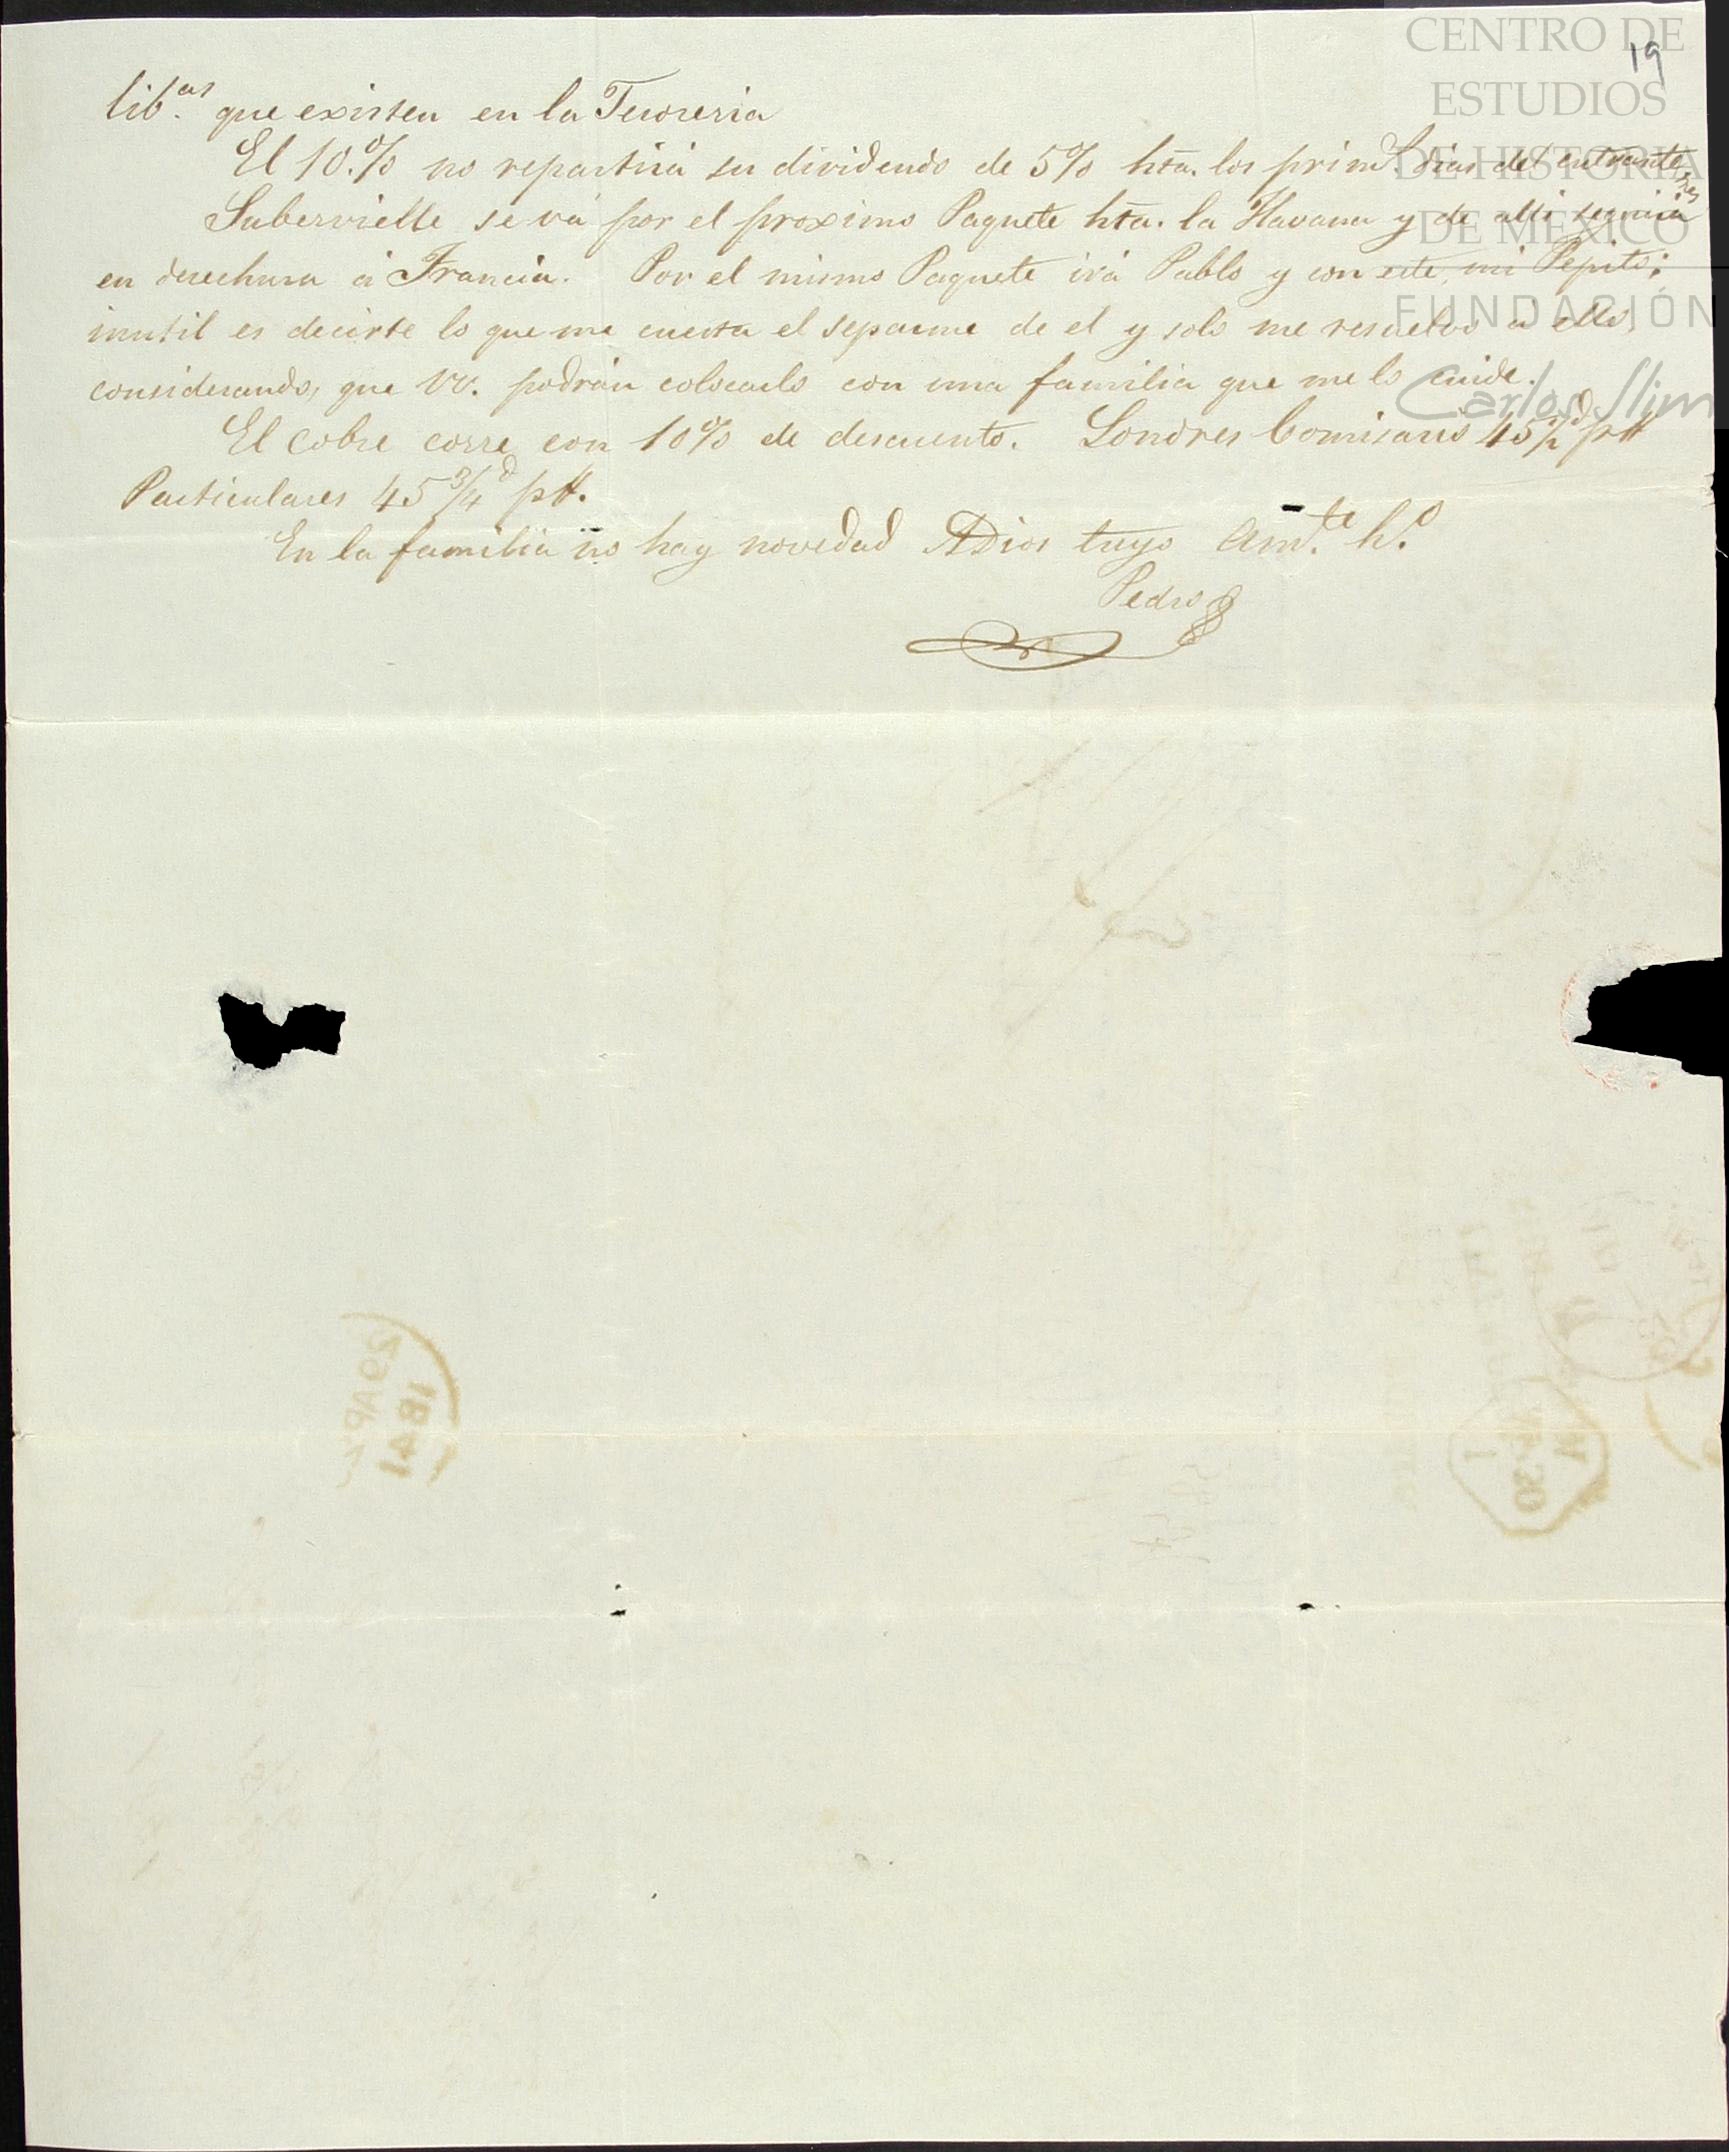 19
lib.as que existen en la Tesoreria
El 10.% no repartirá su dividendo de 5% hta. los prims. dias del entrante mes
Subervielle se vá por el proximo Paquete hta. la Havana y de alli seguirá
en derechura á Francia. Por el mismo Paquete irá Pablo y con este, mi Pepito;
inutil es decirte lo que me cuesta el separme de el y solo me resuelvo a ello
considerando, que VV. podrán colocarlo con una familia que me lo cuide.
El cobre corre con 10% de descuento. Londres Comisario 45 1/2 d p$
Particulares 45 3/4 d p$.
En la familia no hay novedad ADios tuyo am.te h.o
Pedro
CENTRO DE
ESTUDIOS
DE HISTORIA
DE MÉXICO
FUNDACIÓN
Carlos Slim
29 AP
1841